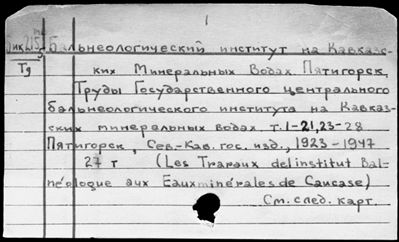 1
Бальнеологический институт на Кавказ-
Тд
ских Минеральных Водах. Пятигорск.
Труды Государственного центрального
бальнеологического института на Кавказ-
ских минеральных водах. т. 1-21, 23-28
Пятигорск, Сев.-Кав. гос. изд., 1923-1947
27 т (Les Travaux del institut Bal-
néologue aux Eaux minérales de Caucase)
См. след. карт.